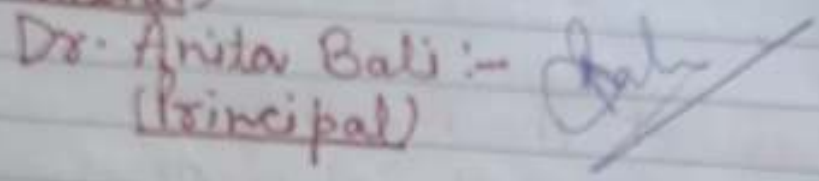 Dr. Anita Bali :-
(Principal)